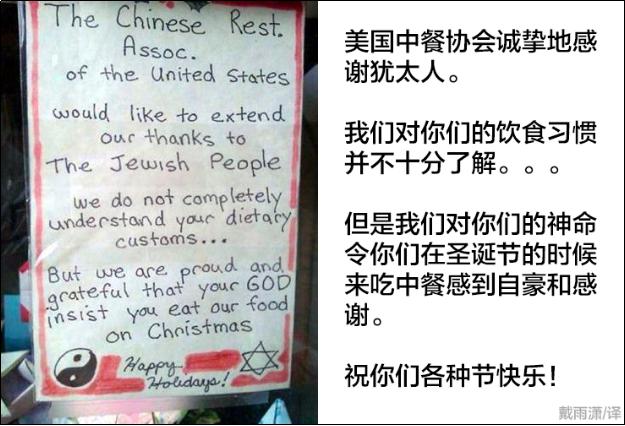 The Chinese Rest.
Assoc.
of the United States
would like to extend
our thanks to
The Jewish People
we do not completely
understand your dietary
customs...
But we are proud and
grateful that your GOD
insist you eat our food
on Christmas
Happy
Holidays!
美国中餐协会诚挚地感
谢犹太人。
我们对你们的饮食习惯
并不十分了解。。。
但是我们对你们的神命
令你们在圣诞节的时候
来吃中餐感到自豪和感
谢。
祝你们各种节快乐！
戴雨潇/译